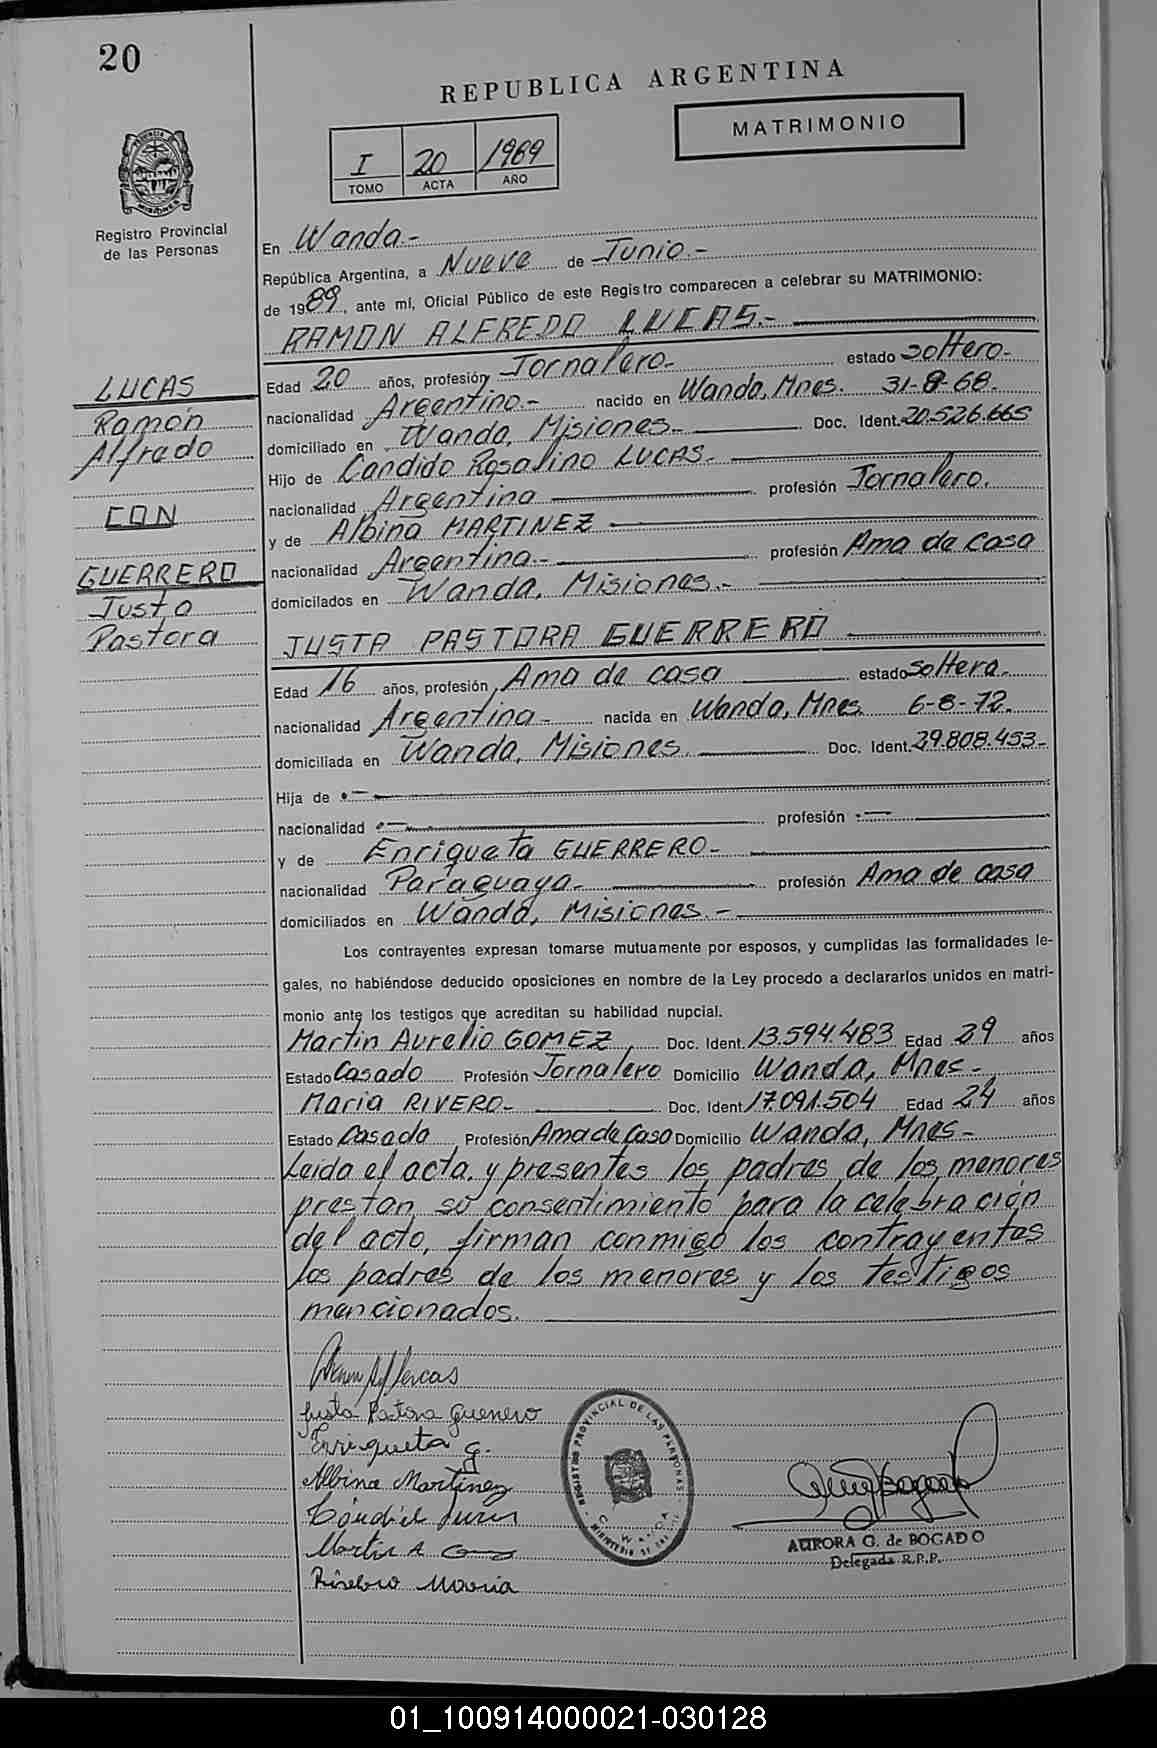 20
REPUBLICA ARGENTINA
MATRIMONIO
I 20 1989
TOMO ACTA AÑO
Registro Provincial
de las Personas
En Wanda.-
República Argentina, a Nueve de Junio.-
de 1989, ante mí, Oficial Público de este Registro comparecen a celebrar su MATRIMONIO:
RAMON ALFREDO LUCAS.-
LUCAS
Ramón
Alfredo
CON
GUERRERO
Justa
Pastora
Edad 20 años, profesión Jornalero.- estado soltero.-
nacionalidad Argentino.- nacido en Wanda, Mnes. 31-8-68.
domiciliado en Wanda, Misiones.- Doc. Ident. 20.526.665
Hijo de Candido Rosalino LUCAS.-
nacionalidad Argentina profesión Jornalero.
y de Albina MARTINEZ
nacionalidad Argentina.- profesión Ama de casa
domicilados en Wanda, Misiones.-
JUSTA PASTORA GUERRERO
Edad 16 años, profesión Ama de casa estado soltera.-
nacionalidad Argentina.- nacida en Wanda, Mnes. 6-8-72.
domiciliada en Wanda, Misiones. Doc. Ident. 29.808.453-
Hija de
nacionalidad profesión
y de Enriqueta GUERRERO-
nacionalidad Paraguaya- profesión Ama de casa
domiciliados en Wanda, Misiones.-
Los contrayentes expresan tomarse mutuamente por esposos, y cumplidas las formalidades le-
gales, no habiéndose deducido oposiciones en nombre de la Ley procedo a declararlos unidos en matri-
monio ante los testigos que acreditan su habilidad nupcial.
Martin Aurelio GOMEZ Doc. Ident. 13.594.483 Edad 29 años
Estado Casado Profesión Jornalero Domicilio Wanda, Mnes-
Maria RIVERO- Doc. Ident 17.091.504 Edad 24 años
Estado Casada Profesión Ama de Casa Domicilio Wanda, Mnes-
Leida el acta, y presentes los padres de los menores
prestan su consentimiento para la celebración
del acto, firman conmigo los contrayentes
los padres de los menores y los testigos
mencionados.
Justa Pastora Guerrero
Enriqueta g.
Albina Martinez
Martin A
Maria
REGISTRO PROVINCIAL DE LAS PERSONAS
AURORA G. de BOGADO
Delegada R.P.P.
01_100914000021-030128